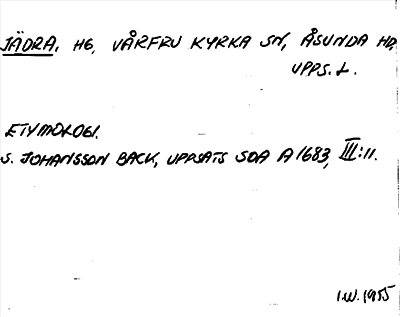 JÄDRA, HG, VÅRFRU KYRKA SN, ÅSUNDA HD,
UPPS. L.
ETYMOLOGI.
S. JOHANSSON BACK, UPPSATS SOA A 1683, III:11.
I.W. 1955